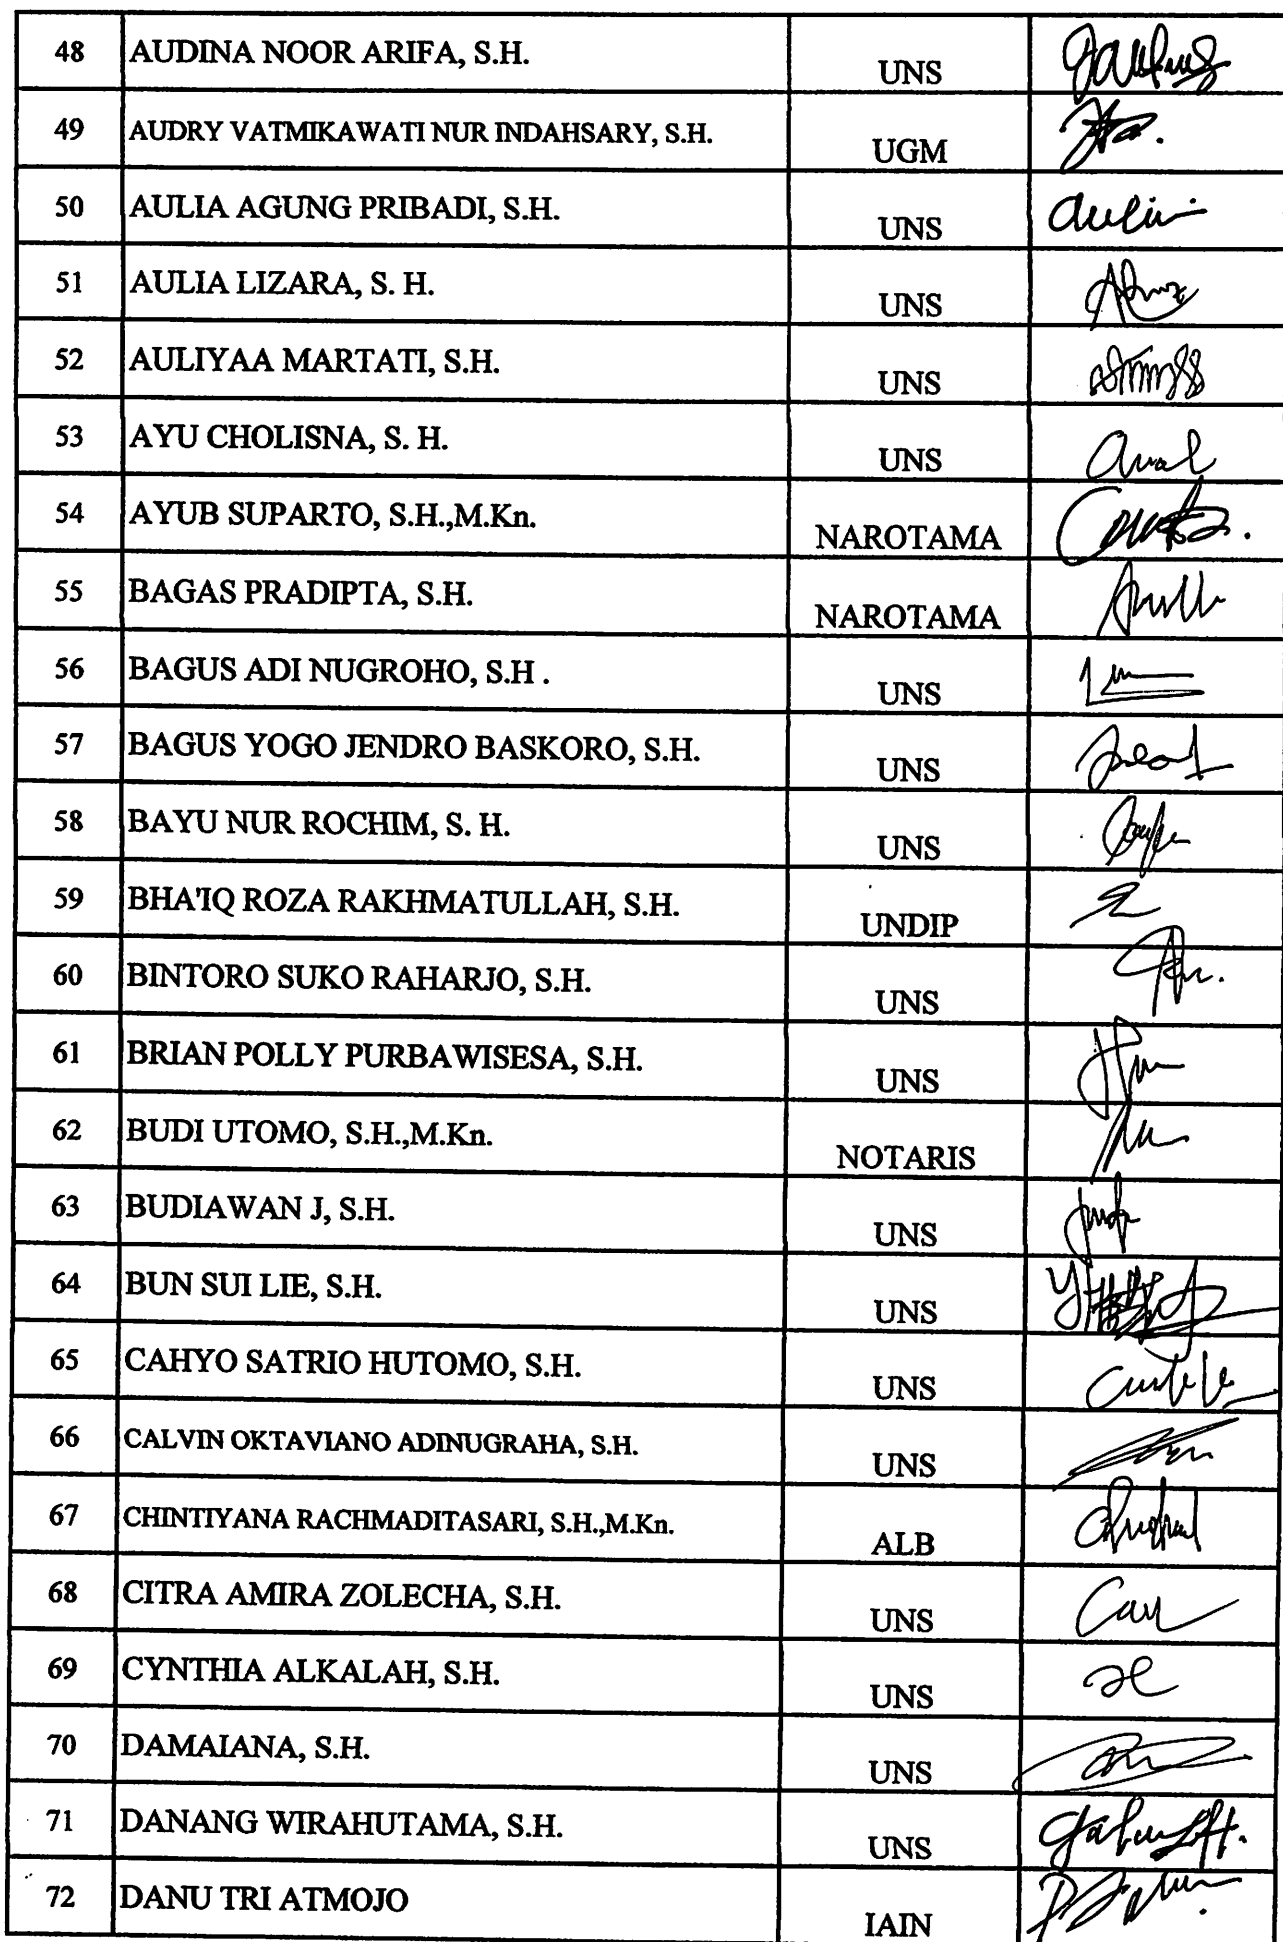 48 AUDINA NOOR ARIFA, S.H. UNS
49 AUDRY VATMIKAWATI NUR INDAHSARY, S.H. UGM
50 AULIA AGUNG PRIBADI, S.H. UNS
51 AULIA LIZARA, S. H. UNS
52 AULIYAA MARTATI, S.H. UNS
53 AYU CHOLISNA, S. H. UNS
54 AYUB SUPARTO, S.H.,M.Kn. NAROTAMA
55 BAGAS PRADIPTA, S.H. NAROTAMA
56 BAGUS ADI NUGROHO, S.H . UNS
57 BAGUS YOGO JENDRO BASKORO, S.H. UNS
58 BAYU NUR ROCHIM, S. H. UNS
59 BHA'IQ ROZA RAKHMATULLAH, S.H. UNDIP
60 BINTORO SUKO RAHARJO, S.H. UNS
61 BRIAN POLLY PURBAWISESA, S.H. UNS
62 BUDI UTOMO, S.H.,M.Kn. NOTARIS
63 BUDIAWAN J, S.H. UNS
64 BUN SUI LIE, S.H. UNS
65 CAHYO SATRIO HUTOMO, S.H. UNS
66 CALVIN OKTAVIANO ADINUGRAHA, S.H. UNS
67 CHINTIYANA RACHMADITASARI, S.H.,M.Kn. ALB
68 CITRA AMIRA ZOLECHA, S.H. UNS
69 CYNTHIA ALKALAH, S.H. UNS
70 DAMAIANA, S.H. UNS
71 DANANG WIRAHUTAMA, S.H. UNS
72 DANU TRI ATMOJO IAIN